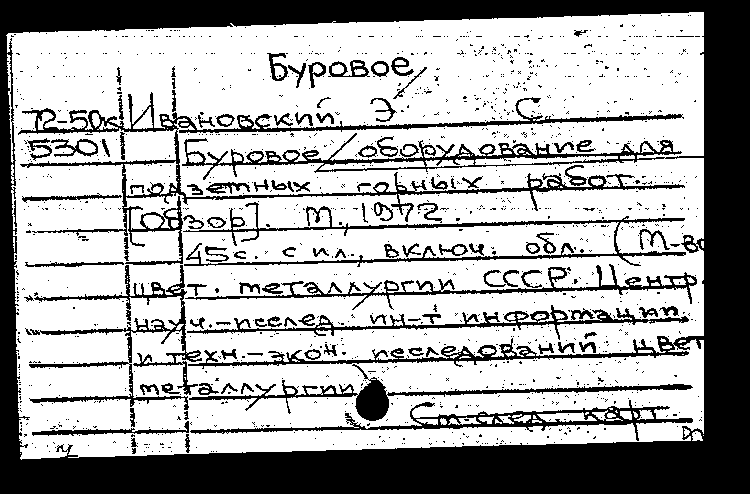 Буровое
72-50к Ивановский, Э. С.
5301 Буровое оборудование для
подземных горных работ.
[Обзор]. М., 1972.
45с. с ил., включ. обл. (М-во
цвет. металлургии СССР. Центр.
науч.-исслед. ин-т информации
и техн.-экон. исследований цвет
металлургии
См. след. карт.